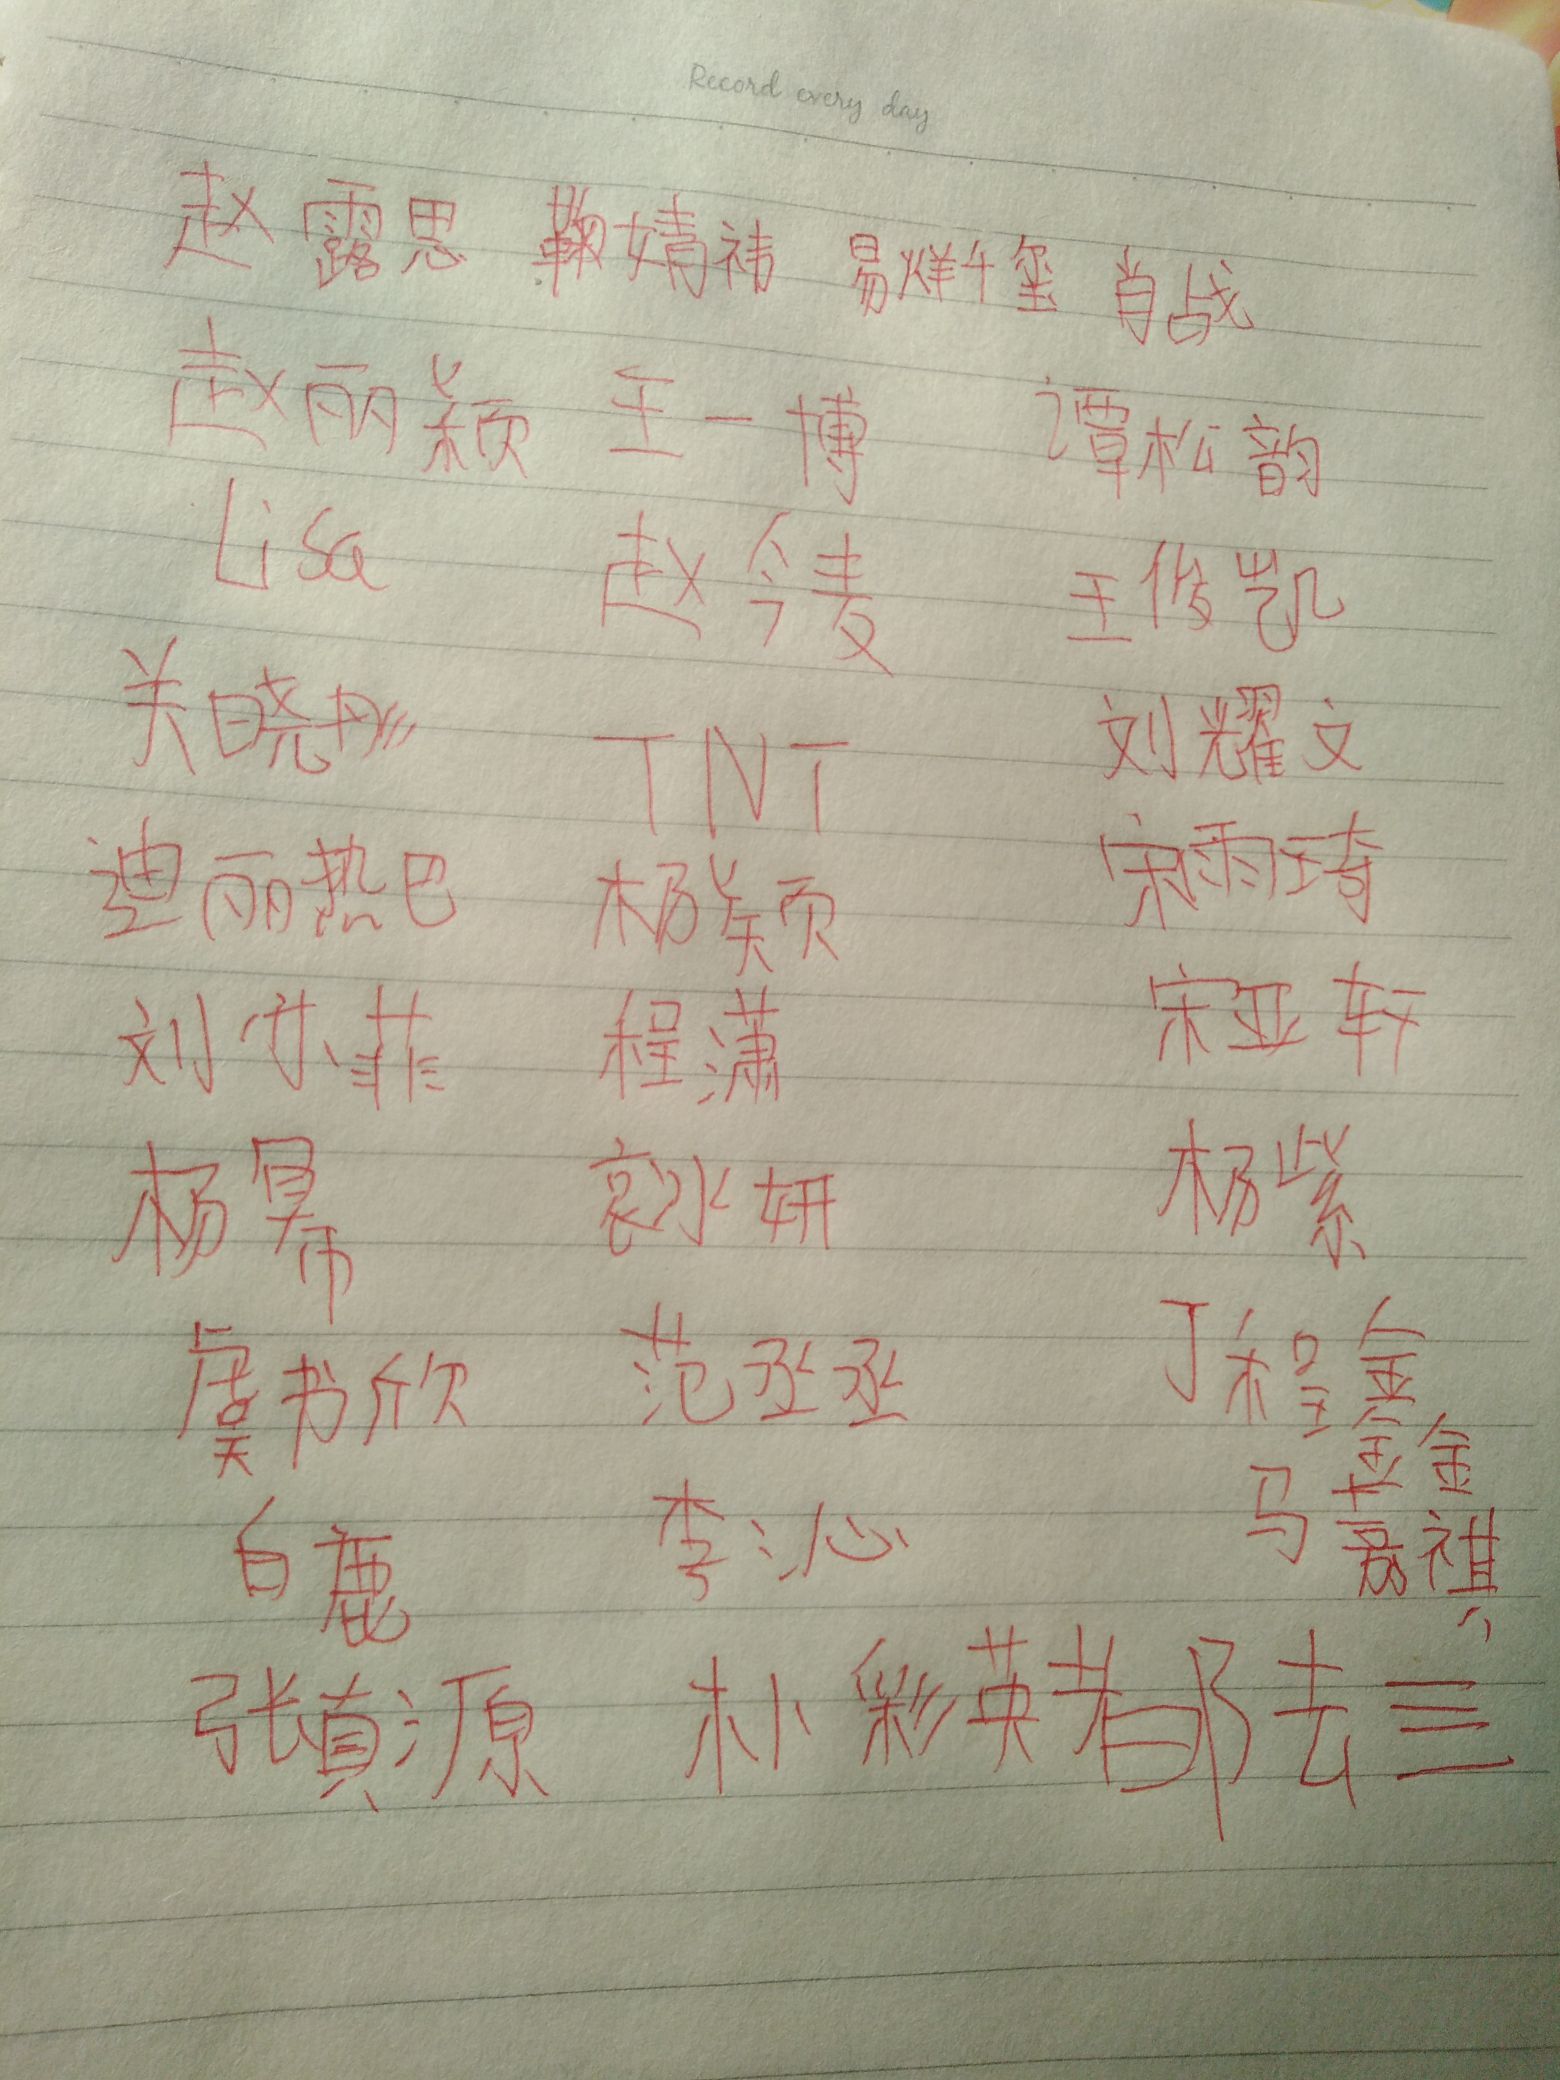 Record every day
赵露思 鞠婧祎 易烊千玺 肖战
赵丽颖 王一博 谭松韵
Lisa 赵今麦 王俊凯
关晓彤 TNT 刘耀文
迪丽热巴 杨颖 宋雨琦
刘亦菲 程潇 宋亚轩
杨幂 袁冰妍 杨紫
虞书欣 范丞丞 丁程金
金金
白鹿 李沁 马嘉祺
张真源 朴彩英都去三